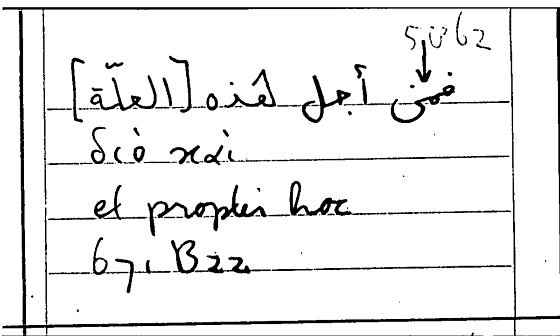 فمن أجل هذه [العلّة]
διὸ καὶ
et propter hoc
67, B22